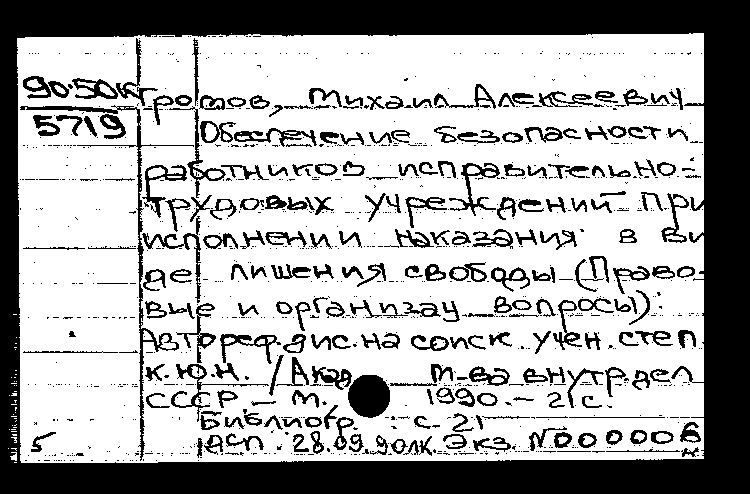 90-50к Громов, Михаил Алексеевич
5719 Обеспечение безопасности
работников исправительно-
трудовых учреждений при
исполнении наказания в ви
де лишения свободы (Право-
вые и организац вопросы):
Автореф.дис.на соиск. учен.степ.
к.ю.н. / Акад. м-ва внутр.дел
СССР — М., 1990.— 21 с.
Библиогр. : с. 21
5 28.09.90 Экз. N000006